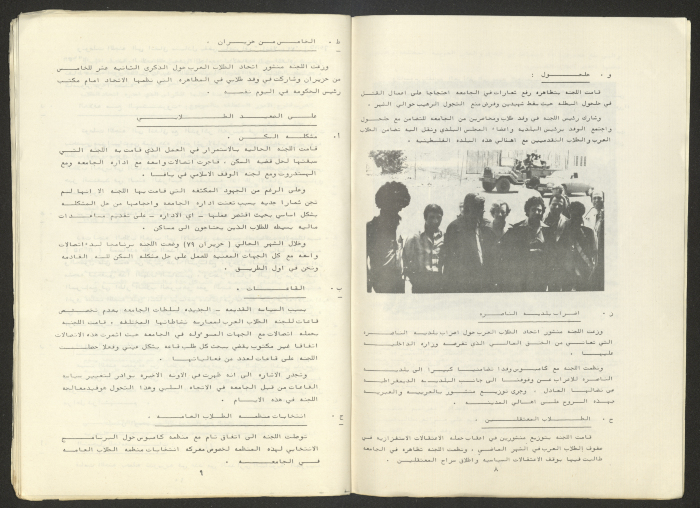 و . حلحــــول :
قامت اللجنة بتظاهرة رفع شعارات في الجامعة احتجاجا على اعمال القتل
في حلحول البطلة حيث سقط شهيدين وفرض منع التجول الرهيب حوالي الشهر .
وشارك رئيس اللجنة في وفد طلاب ومحاضرين من الجامعة للتضامن مع حلحول
واجتمع الوفد برئيس البلدية واعضاء المجلس البلدي ونقل اليه تضامن الطلاب
العرب والطلاب التقدميين مع اهالي هذه البلدة الفلسطينية .
ز . اضراب بلدية الناصرة
وزعت اللجنة منشور اتحاد الطلاب العرب حول اضراب بلدية الناصرة
التي تعاني من الخنق المالي الذي تفرضه وزارة الداخلية
عليها .
ونظمت اللجنة مع كامبوس وفدا تضامنيا كبيرا الى بلدية
الناصرة للاعراب عن وقوفنا الى جانب البلدية الديمقراطية
في نضالها العادل . وجرى توزيع منشور بالعربية والعبرية
بهذه الروح على اهالي المدينة .
ح . الطلاب المعتقلين .
قامت اللجنة بتوزيع منشورين في اعقاب حملة الاعتقالات الاستفزازية في
صفوف الطلاب العرب في الشهر الماضي . ونظمت اللجنة تظاهرة في الجامعة
طالبت فيها بوقف الاعتقالات السياسية واطلاق سراح المعتقلين .
٨
ط . الخامس من حزيران .
وزعت اللجنة منشور اتحاد الطلاب العرب حول الذكرى الثانية عشر للخامس
من حزيران وشاركت في وفد طلابي في المظاهرة التي نظمها الاتحاد امام مكتب
رئيس الحكومة في اليوم نفسه .
على الصعيد الطلابي
أ. مشكلة السكن .
قامت اللجنة الحالية بالاستمرار في العمل الذي قامت به اللجنة التي
سبقتها لحل قضية السكن . فاجرت اتصالات واسعة مع ادارة الجامعة ومع
الهستدروت ومع لجنة الوقف الاسلامي في يافا .
وعلى الرغم من الجهود المكثفة التي قامت بها اللجنة الا انها لم
تجن ثمارا جدية بسبب تعنت ادارة الجامعة واحجامها عن حل المشكلة
بشكل اساسي بحيث اقتصر عملها - اي الادارة - على تقديم مساعدات
مالية بسيطة للطلاب الذين يحتاجون الى مساكن .
وخلال الشهر الحالي ( حزيران ٧٩ ) وضعت اللجنة برنامجا لاتصالات
واسعة مع كل الجهات المعنية للعمل على حل مشكلة السكن للسنة القادمة
ونحن في اول الطريق .
ب . القاعات .
بسبب السياسة القديمة - الجديدة لسلطات الجامعة بعدم تخصيص
قاعات للجنة الطلاب العرب لممارسة نشاطاتها المختلفة ، قامت اللجنة
بحملة اتصالات مع الجهات المسؤولة في الجامعة حيث اثمرت هذه الاتصالات
اتفاقا غير مكتوب يقضي بحث كل طلب قاعة بشكل عيني وفعلا حصلت
اللجنة على قاعات لعدد من فعالياتها .
وتجدر الاشارة الى انه ظهرت في الاونة الاخيرة بوادر لتغيير سياسة
القاعات من قبل الجامعة في الاتجاه السلبي وهذا التحول هو قيد معالجة
اللجنة في هذه الايام .
ج . انتخابات منظمة الطلاب العامة .
توصلت اللجنة الى اتفاق تام مع منظمة كامبوس حول البرنامج
الانتخابي لهذه المنظمة لخصوص معركة انتخابات منظمة الطلاب العامة
في الجامعة .
٩